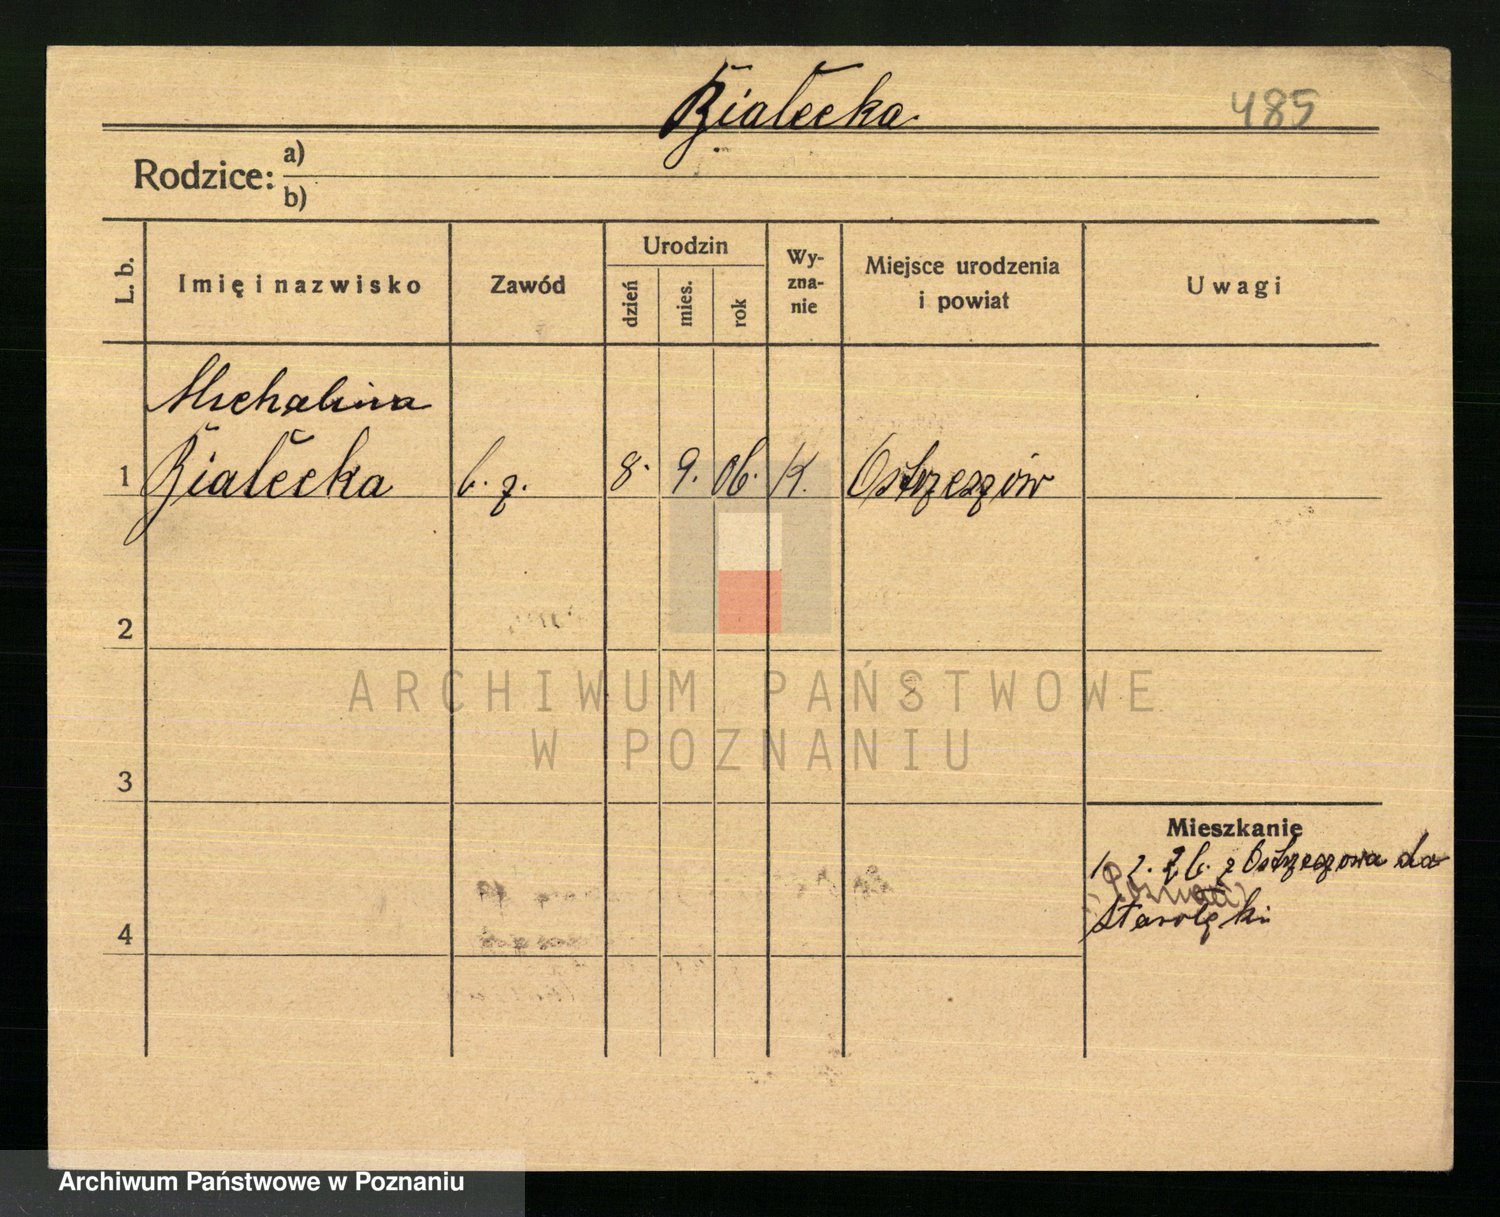 Białecka
485
Rodzice: a)
b)
L. b.
Imię i nazwisko
Zawód
Urodzin
dzień
mies.
rok
Wy-
zna-
nie
Miejsce urodzenia
i powiat
Uwagi
Michalina
1 Białecka b. z. 8. 9. 06. K. Ostrzeszów
2
3
4
Mieszkanie
1. 2. 26. z Ostrzeszowa do
Poznań
Starołęki
ARCHIWUM PAŃSTWOWE
W POZNANIU
Archiwum Państwowe w Poznaniu